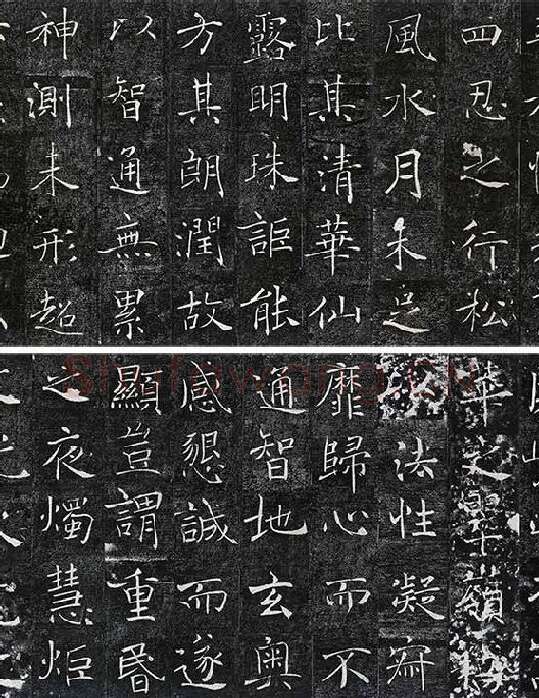 四忍之行松
風水月未足
比其清華仙
露明珠詎能
方其朗潤故
以智通無累
神測未形超
華之翠嶺竊
以法性凝寂
靡歸心而不
通智地玄奧
感懇誠而遂
顯豈謂重昏
之夜燭慧炬